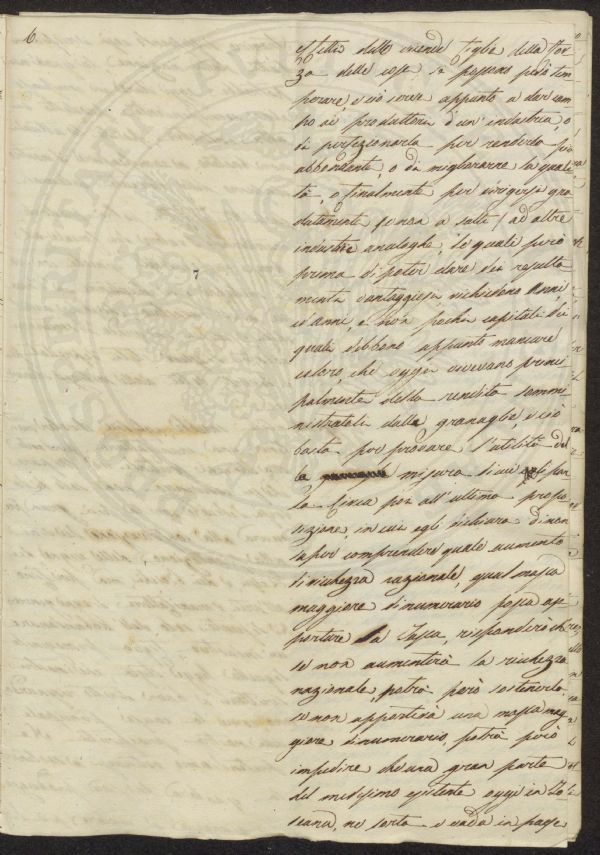 6
effetti delle vicende figlie della for-
za delle cose si possono però tem
porare, e ciò serve appunto a dar cam
po ai produttori d'un' industria, o
di perfezionarla per renderla più
abbondante, o di migliorarne la quali
tà, o finalmente per erigersi gra
datamente (e non a salti) ad altre
industrie analoghe, le quali però
prima di poter dare dei resulta
menti vantaggiosi richiedono anni,
ed anni e non pochi capitali dei
quali debbono appunto mancare
coloro, che oggi vivevano princi
palmente delle rendite sommi
nistrateli dalle granaglie, e ciò
basta per provare l'utilità del
la misura di cui egli par
la. Circa poi all'ultima propo
sizione, in cui egli dichiara di non
saper comprendere quale aumento
di ricchezza nazionale, qual massa
maggiore di numerario possa ap
portare la Tassa, risponderò che
se non aumenterà la ricchezza
nazionale, potrà però sostenerla
se non apporterà una massa mag
giore di numerario, potrà però
impedire che una gran parte
del medesimo esistente oggi in To
scana, ne sorta e vada in paese
7